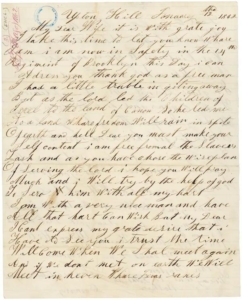 Upton Hill January the 12 1862
My Dear Wife it is with grate joy
I take this time to let you know Whare
I am i am now in Safety in the 14th
Regiment of Brooklyn this Day i can
Adress you thank god as a free man
I had a little truble in giting away
But as the lord led the Children of
Isrel to the land of Canon So he led me
to a land Whare fredom Will rain in spite
Of earth and hell Dear you must make your
Self content i am free from al the Slavers
Lash and as you have chose the Wise plan
Of Serving the lord i hope you Will pray
Much and i Will try by the help of god
To Serv him With all my hart I
am With a very nice man and have
All that hart Can Wish But my Dear
I Cant express my grate desire that i
Have to See you i trust the time
Will Come When We Shal meet again
And if We dont met on earth We Will
Meet in heven Whare Jesas ranes